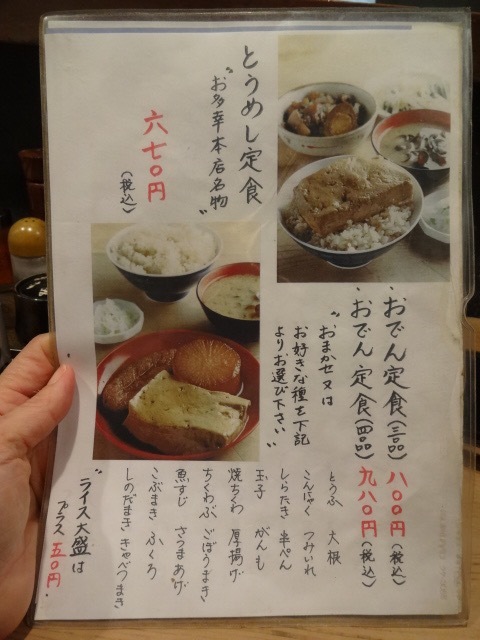 とうめし定食
“お多幸本店名物”
六七〇円
（税込）
・おでん定食（三品） 八〇〇円（税込）
・おでん定食（四品） 九八〇円（税込）
“おまかせ又は
お好きな種を下記
よりお選び下さい”
とうふ 大根
こんにゃく つみいれ
しらたき 半ぺん
玉子 がんも
焼ちくわ 厚揚げ
ちくわぶ ごぼうまき
魚すじ さつまあげ
こぶまき ふくろ
しのだまき きゃべつまき
“ライス大盛は
プラス五〇円”